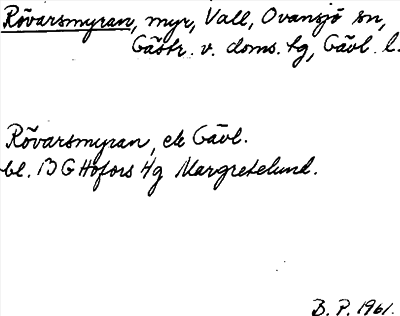 Rövarsmyran, myr, Vall, Ovansjö sn,
Gästr. v. doms. tg, Gävl. l.
Rövarsmyran, ek Gävl.
bl. 13 G Hofors 4g Margretelund.
B. P. 1961.